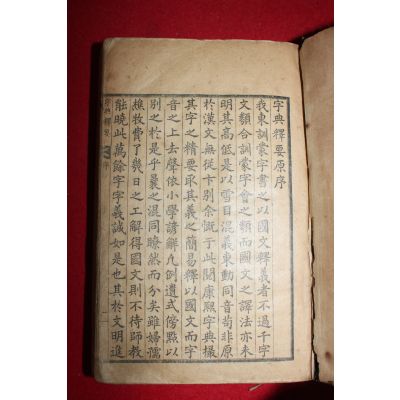 字典釋要原序
我東訓蒙字書之以國文釋義者不過千字
文類合訓蒙字會之類而國文之譯法亦未
明其高低是以雪目混義東動同音苟非原
於漢文無從卞別余慨于此閱康熙字典撮
其字之精要取其義之簡易釋以國文而字
音之上去聲依小學諺解凡例遺式傍點以
別之於是乎義之混同瞭然而分矣雖婦孺
樵牧費了幾日之工解得國文則不待師教
能曉此萬餘字字義誠如是也其於文明進
字典釋要 序